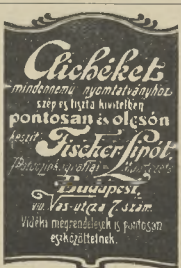 Clichéket
mindennemű nyomtatványhoz
szép és tiszta kivitelben
pontosan és olcsón
készit:
Fischer Lipót
Budapest,
VII. Vas-utca 7. szám.
Vidéki megrendelések is pontosan
eszközöltetnek.